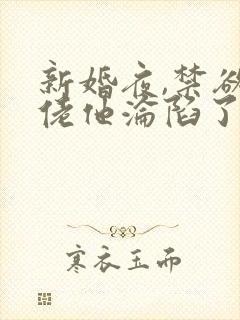 新婚夜,禁欲
佬他沦陷了
寒衣玉而